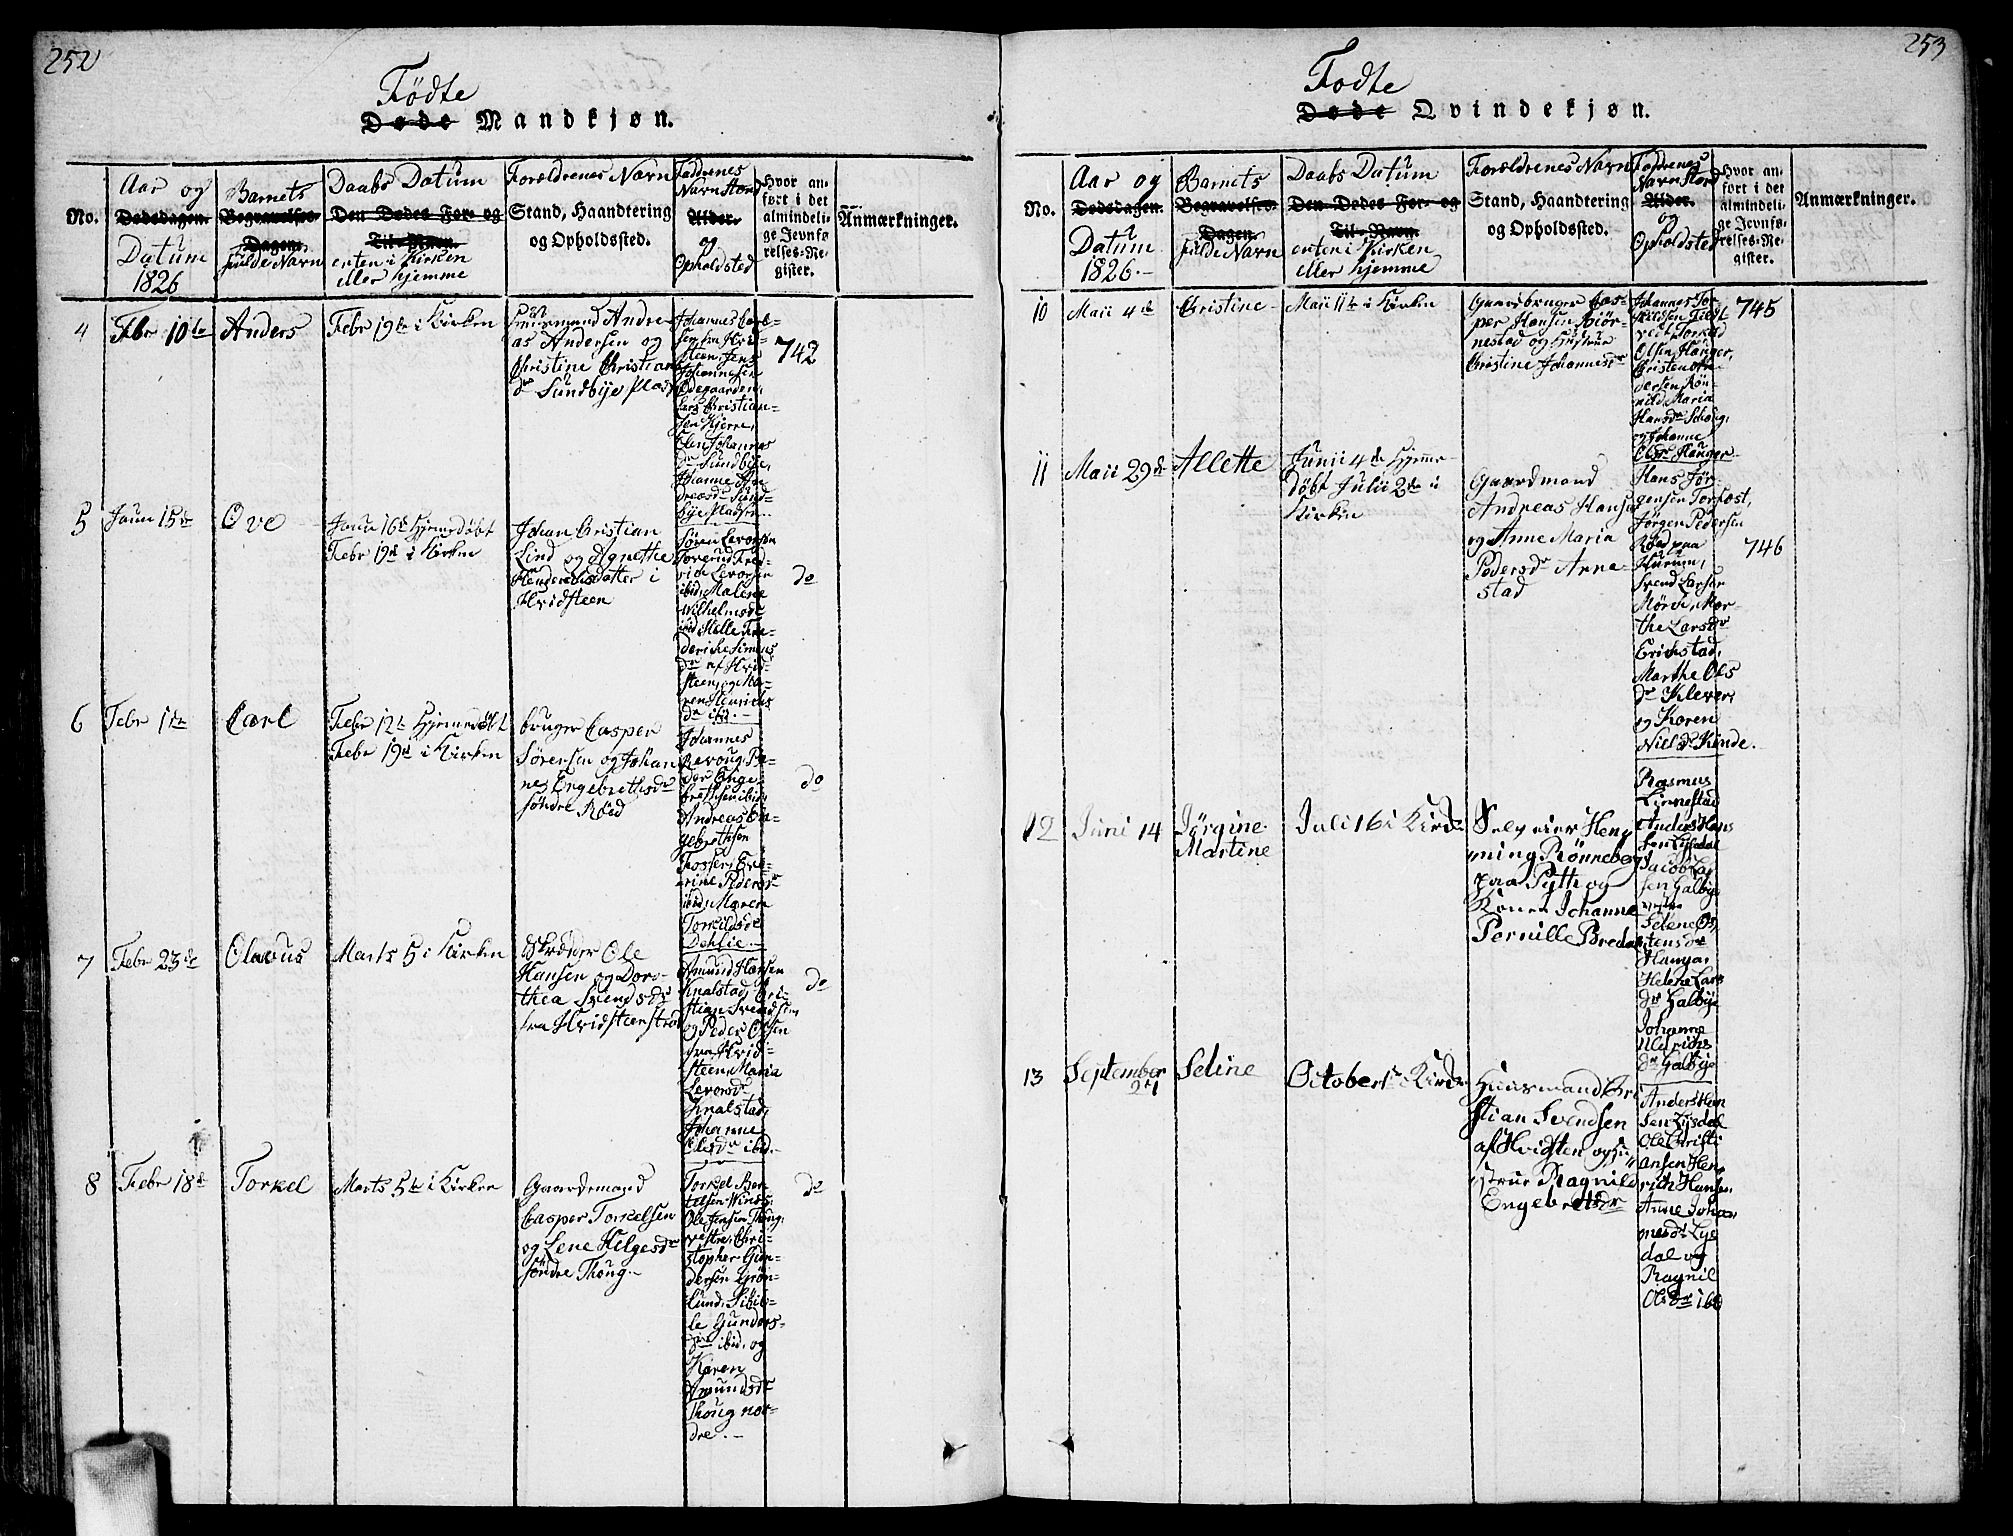 252
Fødte
Døde Mandkjøn.
No.
Aar og
Dødsdagen.
Datum
1826
Barnets
Begravelses-
Dagen.
fulde Navn
Daabs Datum
Den Dødes For- og
Til-Navn.
enten i Kirken
eller hjemme
Forældrenes Navn
Stand, Haandtering
og Opholdssted.
Faddrenes
Navn Stand
Alder.
og
Opholdsted
Hvor an-
ført i det
almindeli-
ge Jevnfø-
relses-Re-
gister.
Anmærkninger.
4
Febr 10de
Anders
Febr 19de i Kirken
Andre-
as Andersen og
Christine Christians
dr Sundbye Plads
Johannes Carl-
sen fra Hvid-
steen, Jens
Johannesen
Ødegaarden,
Lars Christian-
sen Kjerre,
Elen Johannes
dr Sundbye,
Johanne An-
dreasdr Sund-
bye Pladsen.
742
5
Janu 15de
Ove
Janu 16de Hjemmedøbt
Febr 19de i Kirken
Johan Christian
Lind og Agnethe
Hendrichsdatter i
Hvidsteen
Søren Levorsen
Toverud, Fred-
rich Levorsen
ibid, Malene
Wilhelmsdr
ibid, Helle Fre-
deriche Simens
dr af Hvid-
steen, og Ma-
ren Henrichs
dr ibid.
do
6
Febr 1te
Carl
Febr 12te Hjemmedøbt
Febr 19de i Kirken
bruger Casper
Sørensen og Johan
ne Engebrethsdr
søndre Röed
Johannes
Revoug, Pe-
der Enge-
brethsen ibid,
Andreas En-
gebrethsen
Fosser, Eve-
rine Pedersdr
ibid, Maren
Torkildsdr
Dehlie.
do
7
Febr 23de
Olavus
Marts 5 i Kirken
Skræder Ole
Hansen og Doro-
thea Svendsdr
fra Hvidsteen strød
Amund Hansen
Knalstad, Cri-
stian Svendsen
og Peder Olsen
fra Hvid-
steen, Maria
Leversdr
Knalstad,
Johanne
Olesdr ibid.
do
8
Febr 18de
Torkel
Marts 5te i Kirken
Gaardemand
Casper Torkelsen
og Lene Helgesdr
søndre Thoug.
Torkel Ber-
telsen Winds,
Ole Jensen Thoug,
vestre, Chri-
stopher Gun-
dersen Grøn-
lund, Sibil-
le Gunders-
dr ibid, og
Karen
Amundsdr
Thoug nor-
dre.
do
253
Fødte
Døde Qvindekjøn.
No.
Aar og
Dødsdagen.
Datum
1826.
Barnets
Begravelses-
Dagen.
fulde Navn
Daabs Datum
Den Dødes For- og
Til-Navn.
enten i Kirken
eller hjemme
Forældrenes Navn
Stand, Haandtering
og Opholdssted.
Faddrenes
Navn Stand
Alder.
og
Opholdsted
Hvor an-
ført i det
almindeli-
ge Jevnfø-
relses-Re-
gister.
Anmærkninger.
10
Maii 4de
Christine
Maii 11te i Kirken
Gaardbruger Cas-
per Hansen Biör-
nestad og Hustrue
Christine Johannesdr
Johannes Tor-
kildsen Fieldt
vedt, Torkild
Olsen Haüger,
Christen An-
dersen Rön-
nild, Maria
Hansdr Schoug,
og Johanne
Olsdr Haüger
745
11
Maii 29de
Allette
Junii 4de Hjemme-
døbt Julii 2de i
Kirken
Gaardmand
Andreas Hansen
og Anne Maria
Pedersdr Anne-
stad
Hans Jør-
gensen Torfast,
Jørgen Pedersen
Röed paa
Hurum,
Svend Larsen
Mörch, Mar-
the Larsdr
Erichstad,
Marthe Ols
dr Klever
og Karen
Nielsdr Kinde.
746
12
Juni 14
Jørgine
Martine
Juli 16 i Kirk
Selveier Hen
ning Rönneberg
paa Pytt og
Konen Johanne
Pernille Breda
Rasmus
Linnestad
Anders Hans
sen Lysdal
Jacob Lar
sen Galbye
vestre
Helene
Hanvar
Helene Lars
dr Galbye
Johanne
Ulrichs
dr Galbye
13
September
21
Seline
October 1 Kirk
Huusmand Cri
stian Svendsen
af Hvidsten og hu
strue Ragnild
Engebretsdr
Anders Han
sen Lysdal
Ole Christi
ansen Hen
rich Hansen
Anne Johan
nesdr Lys
dal og
Ragnil
Olsdr ibd